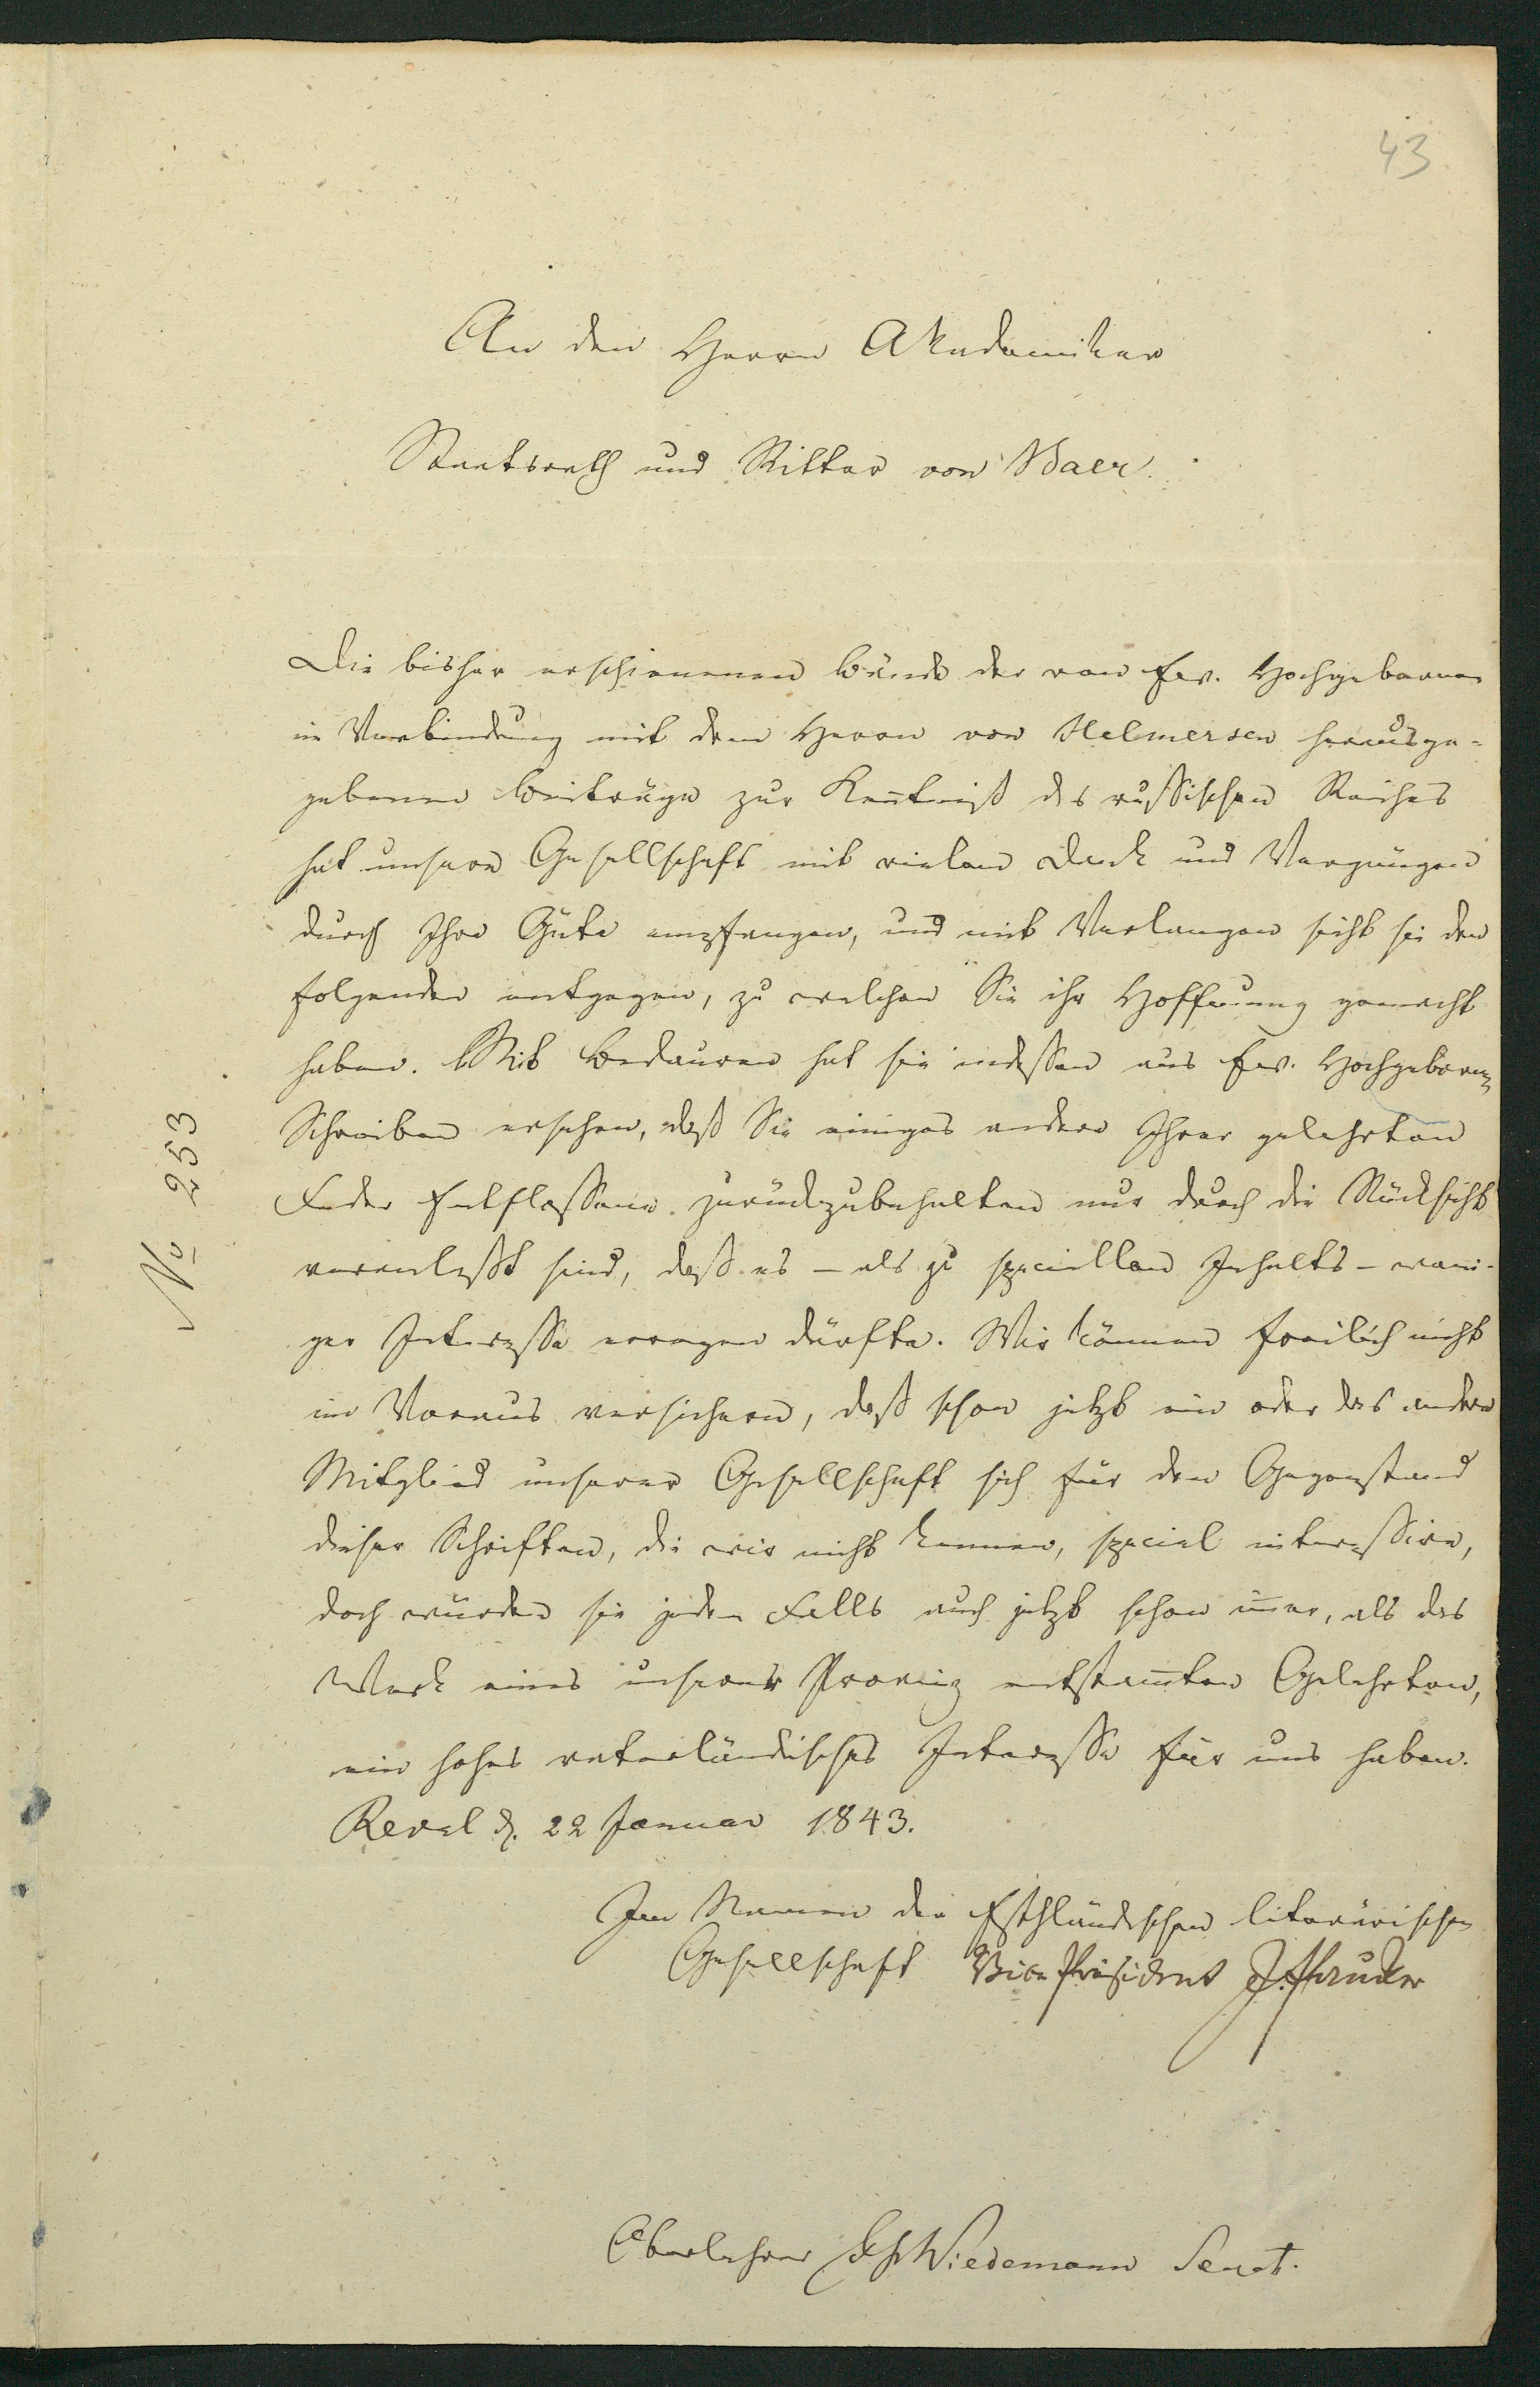 43
An den Herrn Akademiker
Staatsrath und Ritter von Baer.
Die bisher erschienenen Bände der von Ew. Hochgeboren
in Verbindung mit dem Herrn von Helmersen herausge-
gebenen Beiträge zur Keñtniß des russischen Reiches
hat unsere Gesellschaft mit vielem Dank und Vergnügen
durch Ihre Güte empfangen, und mit Verlangen sieht sie den
folgenden entgegen, zu welchen Sie ihr Hoffnung gemacht
haben. Mit Bedauren hat sie indessen aus Ew. Hochgeboren
Schreiben ersehen, daß Sie einiges andere Ihrer gelehrten
Feder Entflossene zurückzubehalten nur durch die Rücksicht
veranlaßt sind, daß es – als zu speciellen Inhalts – weni-
ger Interesse erregen dürfte. Wir können freilich nicht
im Voraus versichern, daß schon jetzt ein oder das andere
Mitglied unserer Gesellschaft sich für den Gegenstand
dieser Schriften, die wir nicht kennen, special interessire,
doch würden sie jeden Falls auch jetzt schon im̄er, als das
Werk eines unserer Provinz entstam̄ten Gelehrten,
ein hohes vaterländisches Interesse für uns haben.
Reval d. 22 Januar 1843.
Im Namen der Esthländischen literärischen
Gesellschaft Vice Präsident
Oberlehrer Wiedemann Secret.
No 253